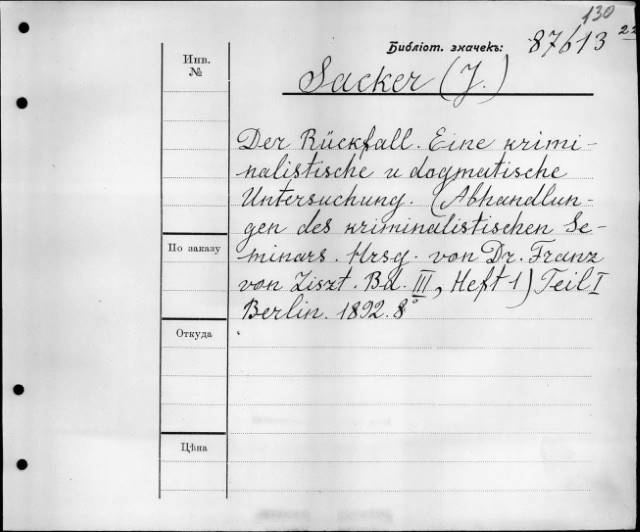 130
Библіот. значекъ: 87613 22
Инв. №
Sacker (J.)
Der Rückfall. Eine krimi-
nalistische u dogmatische
Untersuchung. (Abhandlun-
gen des kriminalistischen Se-
minars. Hrsg. von Dr. Franz
von Liszt. Bd. III, Heft 1) Teil I
Berlin. 1892. 8°
По заказу
Откуда
Цѣна